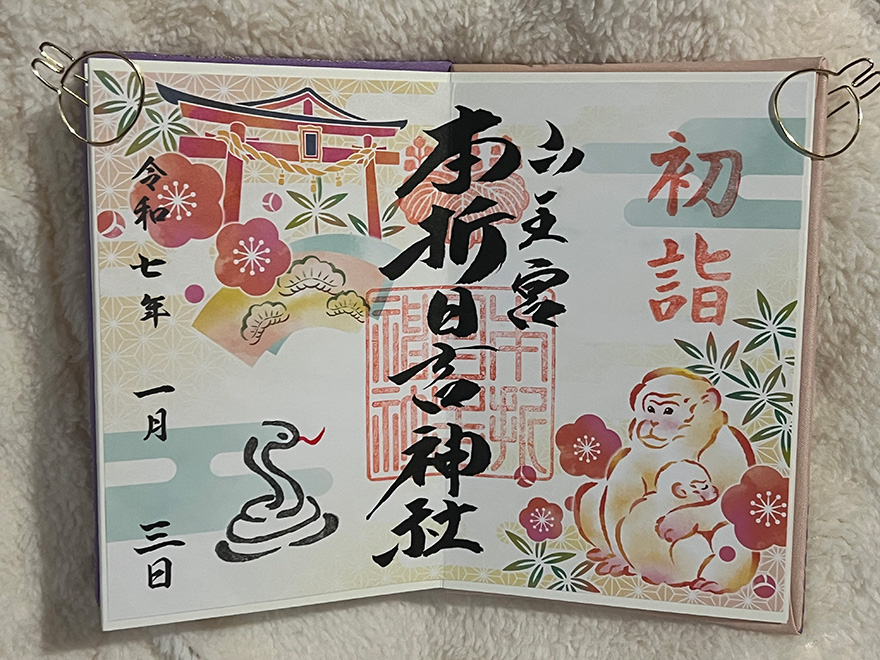 初詣
山王宮
本折日吉神社
令和七年 一月 三日